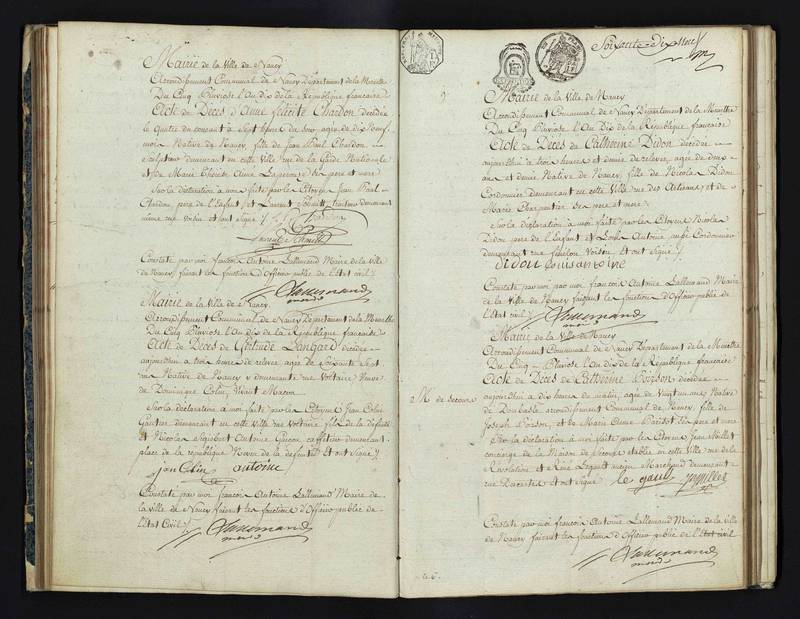 Mairie de la Ville de Nancy
Arrondissement Communal de Nancy Département de la Meurthe
Du Cinq Pluviose l'An dix de la République française
Acte de Décès d'Anne félicité Chardon décédée
le quatre du courant à Sept heures du soir, agée de dix neuf
mois Native de Nancy, fille de Jean Paul Chardon
Sculpteur demeurant en cette Ville rue de la Garde Nationale
et de Marie Thérèse Anne ses pere et mere
Sur la déclaration à moi faite par le Citoyen Jean Paul
Chardon pere de l'Enfant et Laurent Schmitt demeurant
même rue voisin et ont signé
Chardon
Laurent Schmitt
Constaté par moi françois Antoine Lallemand Maire de la Ville
de Nancy faisant les fonctions d'Officier public de l'Etat civil
Lallemand
Mairie de la Ville de Nancy
Arrondissement Communal de Nancy Département de la Meurthe
Du Cinq Pluviose l'An dix de la République française
Acte de Décès de Gertrude Langard décédée
aujourdhui a trois heures de relevée agée de Soixante Sept
ans Native de Nancy y demeurante rue Voltaire Veuve
de Dominique Colin, Vivant Macon
Sur la déclaration à moi faite par le Citoyen Jean Colin
demeurant en cette Ville rue Voltaire fils de la défunte
et Nicolas Sigisbert Antoine caffetier demeurant
place de la république de la défunte Et ont Signé
jean Colin antoine
Constaté par moi françois Antoine Lallemand Maire de
la ville de Nancy faisant les fonctions d'Officier public de
l'Etat Civil
Lallemand
Soixante dix neuf
Mairie de la Ville de Nancy
Arrondissement Communal de Nancy Département de la Meurthe
Du Cinq Pluviose l'An Dix de la République française
Acte de Décès de Catherine Didon décédée
aujourdhui à trois heures et demie de relevée, agée de deux
ans et demie Native de Nancy, fille de Nicolas Didon
Cordonnier demeurant en cette Ville rue des Artisans, et de
Marie Charpentier ses pere et mere
Sur la déclaration à moi faite par les Citoyens Nicolas
Didon pere de l'Enfant et Louis Antoine aussi Cordonnier
demeurant rue fénelon Voisin et ont Signé
didon Louis antoine
Constaté par moi françois Antoine Lallemand Maire
de la Ville de Nancy faisant les fonctions d'Officier public de
l'Etat civil
Lallemand
Mairie de la Ville de Nancy
Arrondissement Communal de Nancy Département de la Meurthe
Du Cinq Pluviose l'An Dix de la République française
Acte de Décès de Catherine Poirson décédée
Mn de secours
aujourdhui à dix heures du matin, agée de Vingt un ans, Native
de Dombasle arrondissement Communal de Nancy, fille de
Joseph Poirson et de Marie Anne Parisot ses pere et mere
Sur la déclaration à moi faite par les Citoyens Jean Millet
concierge de la Maison de Secours établie en cette Ville rue de la
Révolution et René Legault Marchand demeurant
rue et ont signé le gault jn millet
Constaté par moi françois Antoine Lallemand Maire de la Ville
de Nancy faisant les fonctions d'Officier public de l'Etat civil
Lallemand